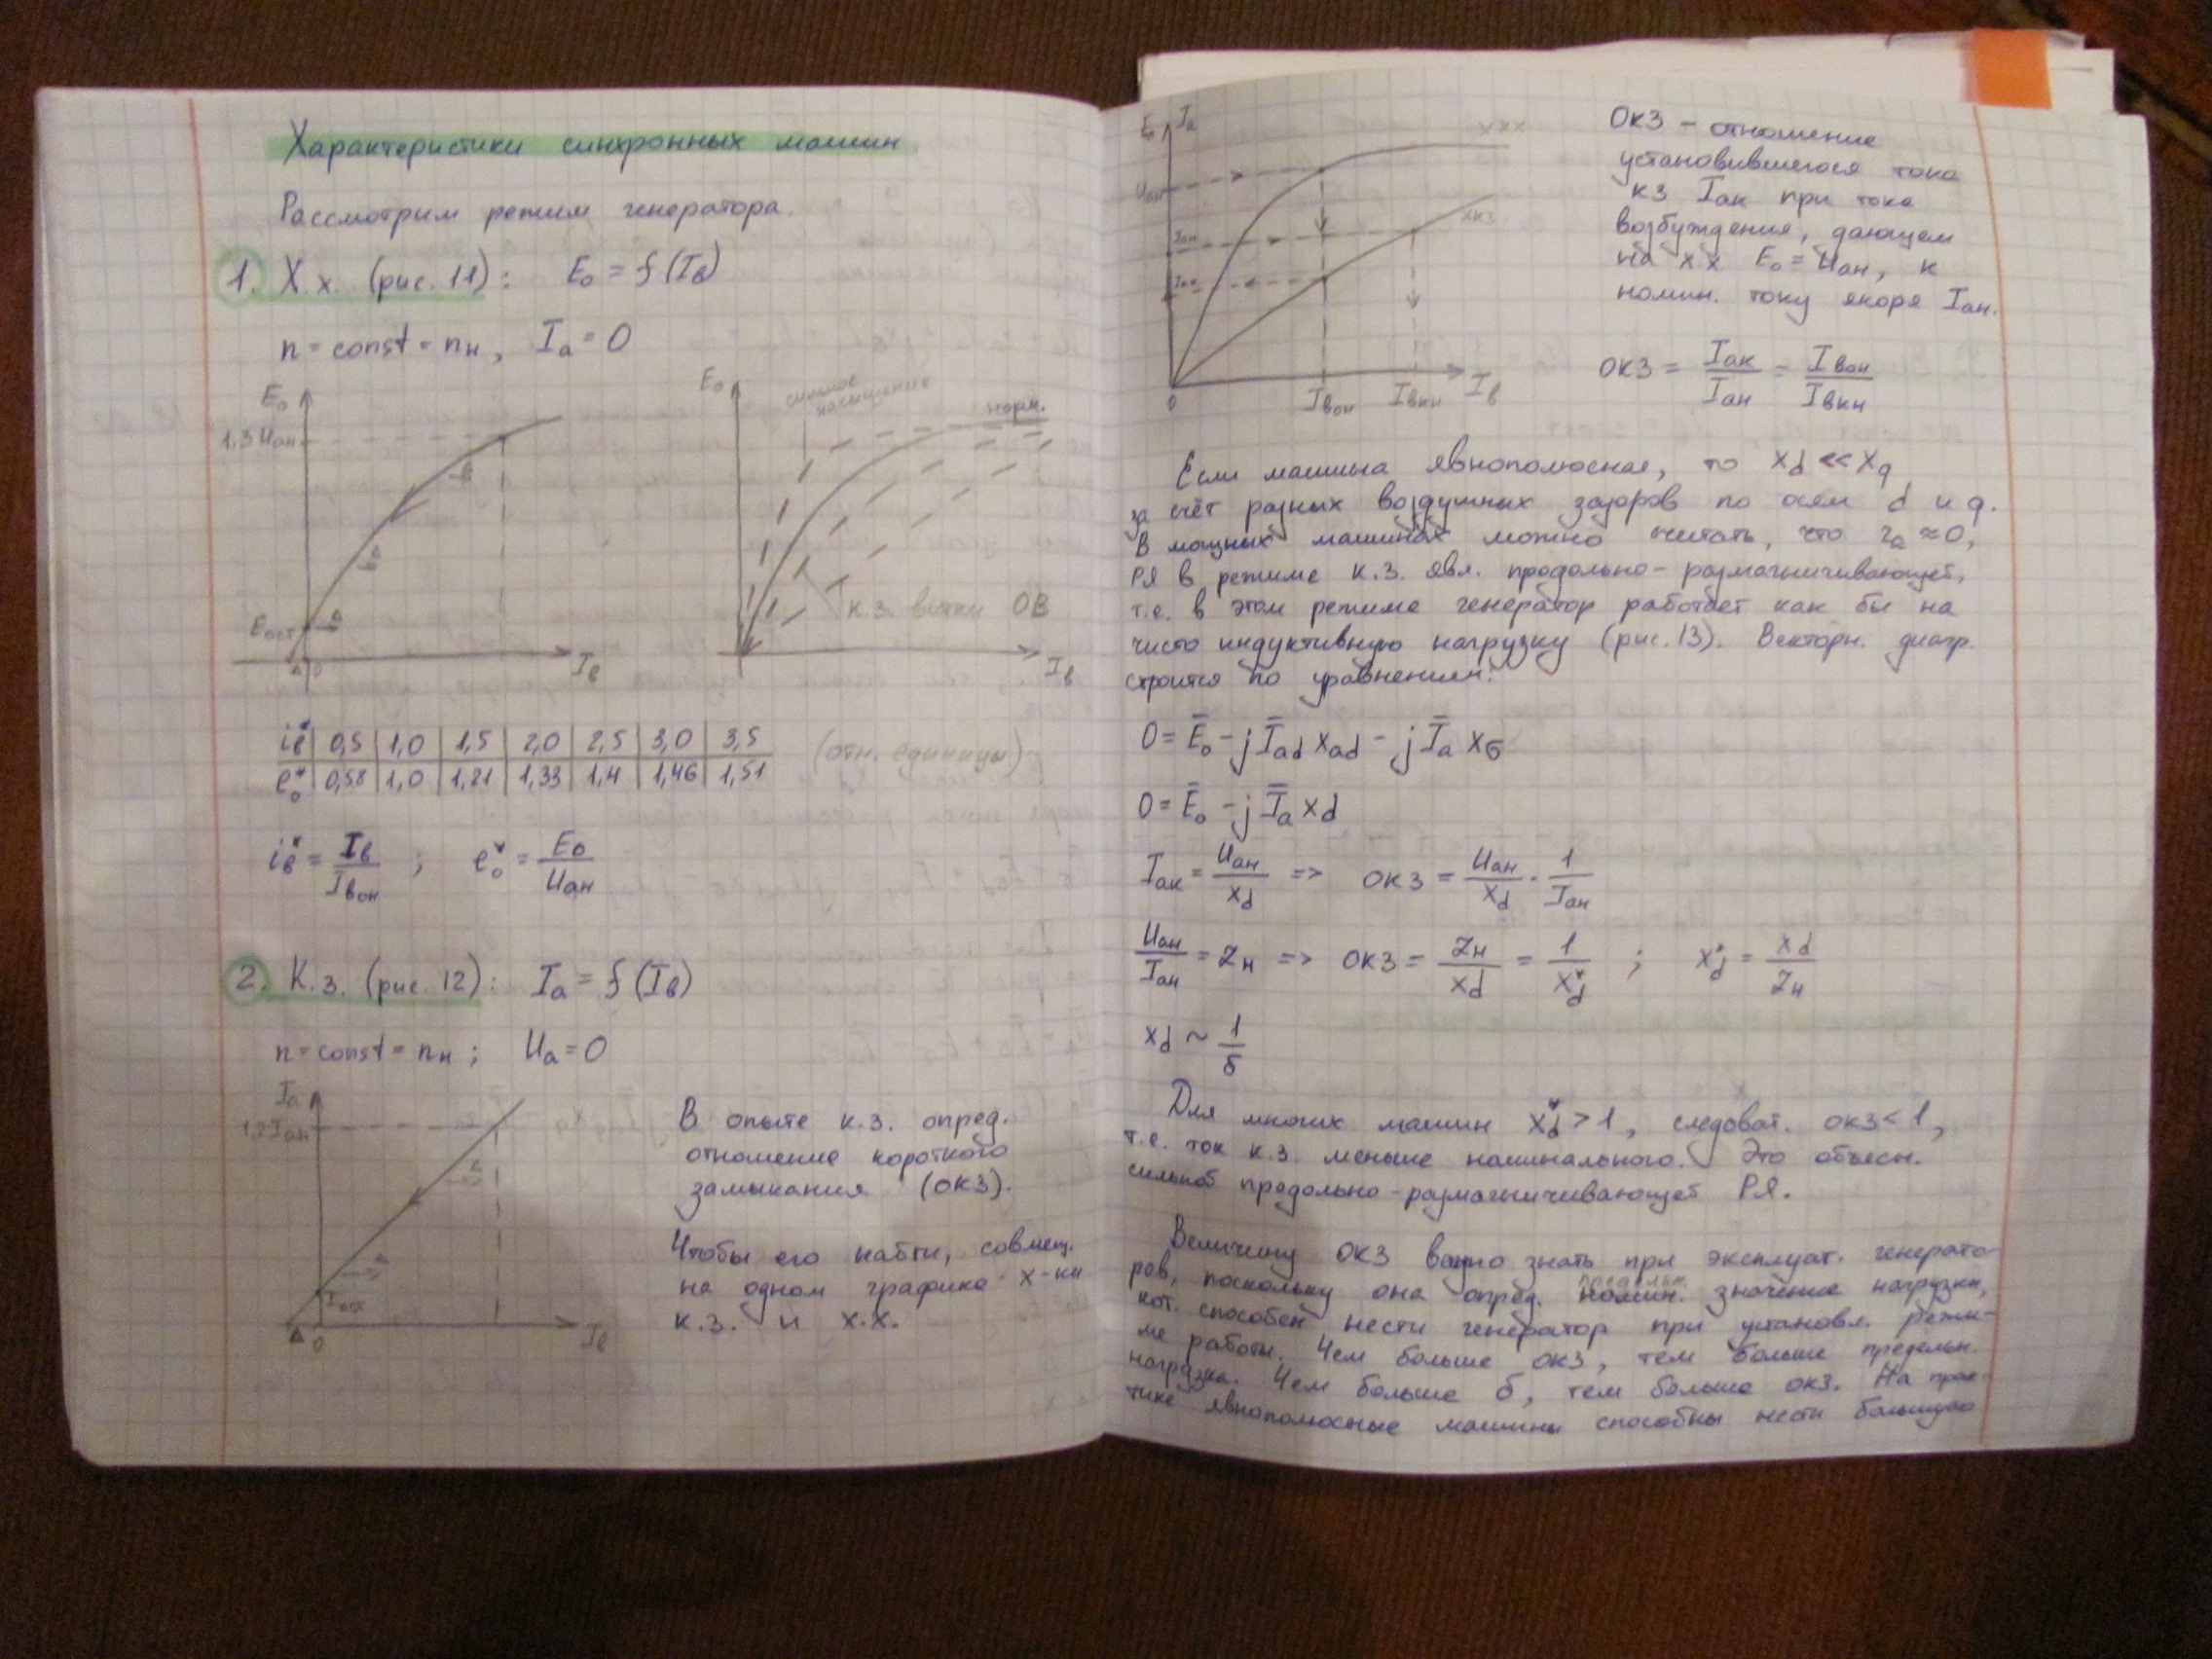 Характеристики синхронных машин
Рассмотрим режим генератора.
1. Х.х. (рис. 11): E₀ = f(Iв)
n = const = nн, Iа = 0
E₀
1.3 Uан
Eост
Δ 0
Iв
E₀
сильное
насыщение
норм.
к.з. витки ОВ
Iв
iв* | 0,5 | 1,0 | 1,5 | 2,0 | 2,5 | 3,0 | 3,5
e₀* | 0,58 | 1,0 | 1,21 | 1,33 | 1,4 | 1,46 | 1,51
(отн. единицы)
iв* = Iв / Iвон ; e₀* = E₀ / Uан
2. К.з. (рис. 12): Iа = f(Iв)
n = const = nн ; Uа = 0
Iа
1,2 Iан
Iост
Δ 0
Iв
В опыте к.з. опред.
отношение короткого
замыкания (ОКЗ).
Чтобы его найти, совмещ.
на одном графике х-ки
к.з. и х.х.
E₀ Iа
Uан
Iан
Iак
0
ХХХ
ХКЗ
Iвон Iвкн Iв
ОКЗ – отношение
установившегося тока
КЗ Iак при токе
возбуждения, дающем
на хх E₀ = Uан, к
номин. току якоря Iан.
ОКЗ = Iак / Iан = Iвон / Iвкн
Если машина явнополюсная, то xd << xq
за счёт разных воздушных зазоров по осям d и q.
В мощных машинах можно считать, что rа ≈ 0,
РЯ в режиме к.з. явл. продольно-размагничивающей,
т.е. в этом режиме генератор работает как бы на
чисто индуктивную нагрузку (рис. 13). Векторн. диагр.
строится по уравнениям:
0 = Ē₀ - j Īаd xаd - j Īа xσ
0 = Ē₀ - j Īа xd
Iак = Uан / xd => ОКЗ = Uан / xd · 1 / Iан
Uан / Iан = Zн => ОКЗ = Zн / xd = 1 / xd* ; xd* = xd / Zн
xd ~ 1 / δ
Для многих машин xd* > 1, следоват. ОКЗ < 1,
т.е. ток к.з. меньше номинального. Это объясн.
сильной продольно-размагничивающей РЯ.
Величину ОКЗ важно знать при эксплуат. генерато-
ров, поскольку она опред. предельн. значение нагрузки,
кот. способен нести генератор при установл. режи-
ме работы. Чем больше ОКЗ, тем больше предельн.
нагрузка. Чем больше δ, тем больше ОКЗ. На прак-
тике явнополюсные машины способны нести большую